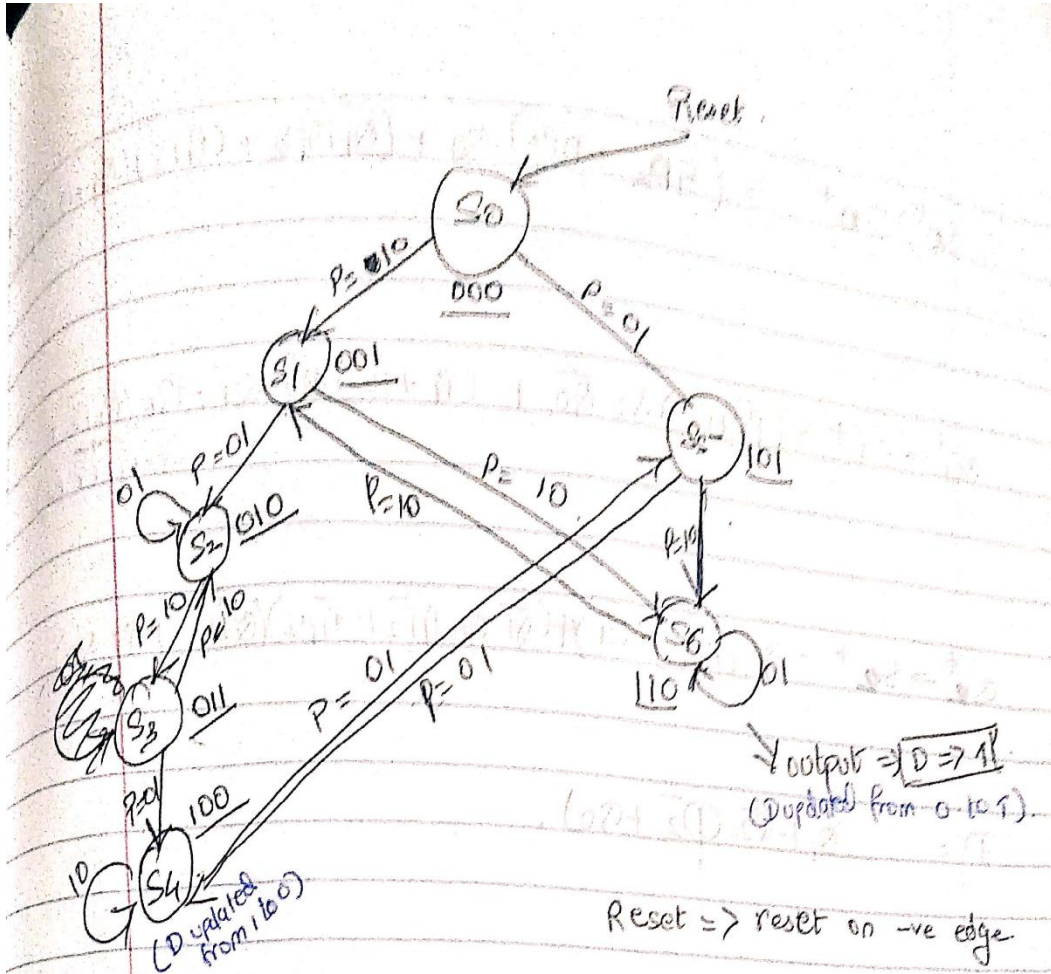 Reset
S0
000
P= 10
P= 01
S1
001
S5
101
P=01
P= 10
P=10
01
S2
010
P=10
P=10
P=10
S3
011
P= 01
P= 01
S6
110
01
P=01
100
10
S4
(D updated
from 1 to 0)
output => D => 1
(D updated from 0 to 1).
Reset => reset on -ve edge